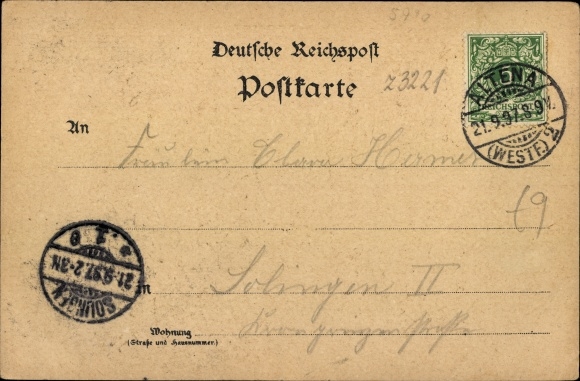 Deutsche Reichspost
Postkarte
z3221
ALTENA
REICHSPOST
21.9.97. 8-9V.
(WESTF.)
An
Fräulein Clara
£9
SOLINGEN
21.9.97. 2-3N.
in Solingen II
Wohnung
(Straße und Hausnummer)